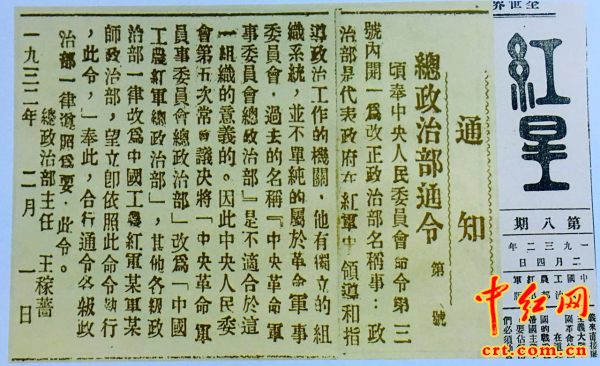 全世界
紅星
第八期
一九三二年
二月四日
中國工農紅軍
通知
總政治部通令 第 號
頃奉中央人民委員會命令第三
號內開「爲改正政治部名稱事：政
治部是代表政府在紅軍中領導和指
導政治工作的機關，他有獨立的組
織系統，並不單純的屬於革命軍事
委員會，過去的名稱『中央革命軍
事委員會總政治部』是不適合於這
一組織的意義的。因此中央人民委
員會第五次常會議決將『中央革命軍
事委員會總政治部』改爲『中國
工農紅軍總政治部』，其他各級政
治部一律改爲中國工農紅軍某軍某
師政治部，望立卽依照此命令執行
，此令，」奉此，合行通令各級政
治部一律遵照爲要，此令。
總政治部主任 王稼薔
一九三二年 二月 一日
中红网
crt.com.cn